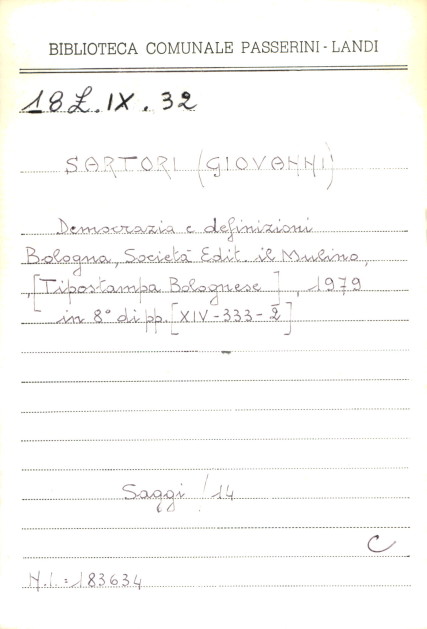 BIBLIOTECA COMUNALE PASSERINI-LANDI
18 L. IX. 32
SARTORI (GIOVANNI)
Democrazia e definizioni
Bologna, Società Edit. il Mulino,
[Tipostampa Bolognese], 1979
in 8° di pp. [XIV-333-2]
Saggi / 14
C
N.I.: 183634